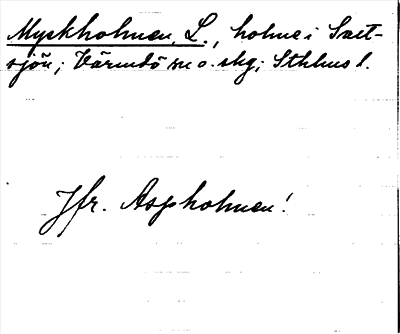 Myskholmen, L., holme i Saet-
sjön; Värmdö sn o. skg; Sthlms l.
Jfr. Aspholmen!